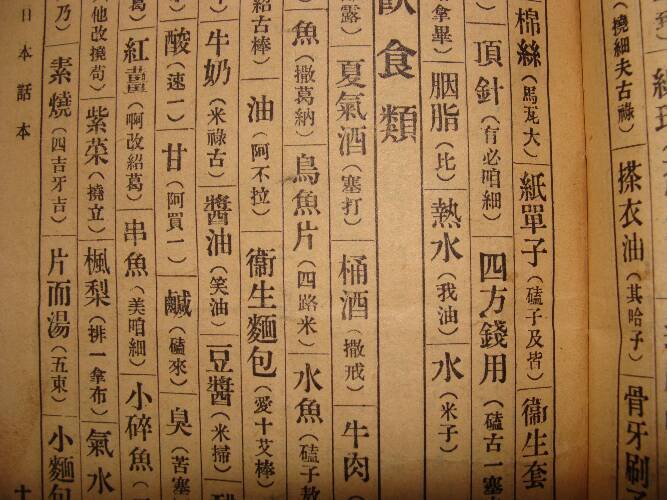 (撓細夫古祿)搽衣油(其哈子)骨牙刷
棉絲(馬瓦大)紙單子(磕子及皆)衞生套
頂針(有必咱細)四方錢用(磕古一塞
拿畢)胭脂(比)熱水(我油)水(米子)
飲食類
露)夏氣酒(塞打)桶酒(撒戒)牛肉(
魚(撒葛納)烏魚片(四路米)水魚(磕子
紹古棒)油(阿不拉)衞生麵包(愛十艾棒)
牛奶(米祿古)醬油(笑油)豆醬(米掃)
酸(速一)甘(阿買一)鹹(磕來)臭(苦塞
葛)紅薑(啊改紹葛)串魚(美咱細)小碎魚(
他改撓苟)紫菜(撓立)楓梨(排一拿布)氣水(
乃)素燒(四吉牙吉)片而湯(五東)小麵包
日本話本